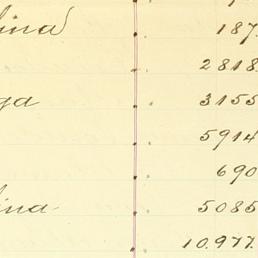 lina 187
2818
ga 3155
5914
690
lina 5085
10.977.